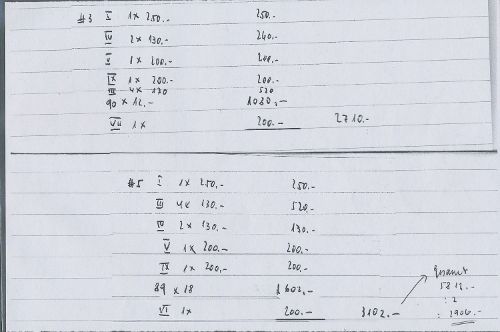 #3 I 1x 250.- 250.-
IV 2x 130.- 260.-
V 1x 200.- 200.-
IX 1x 200.- 200.-
III 4x 130 520
90 x 12.- 1080.-
VII 1x 200.- 2710.-
#5 I 1x 250.- 250.-
III 4x 130.- 520.-
IV 2x 130.- 130.-
V 1x 200.- 200.-
IX 1x 200.- 200.-
89 x 18 1602.-
VI 1x 200.- 3102.-
Gesamt
5812.-
: 2
: 2906.-